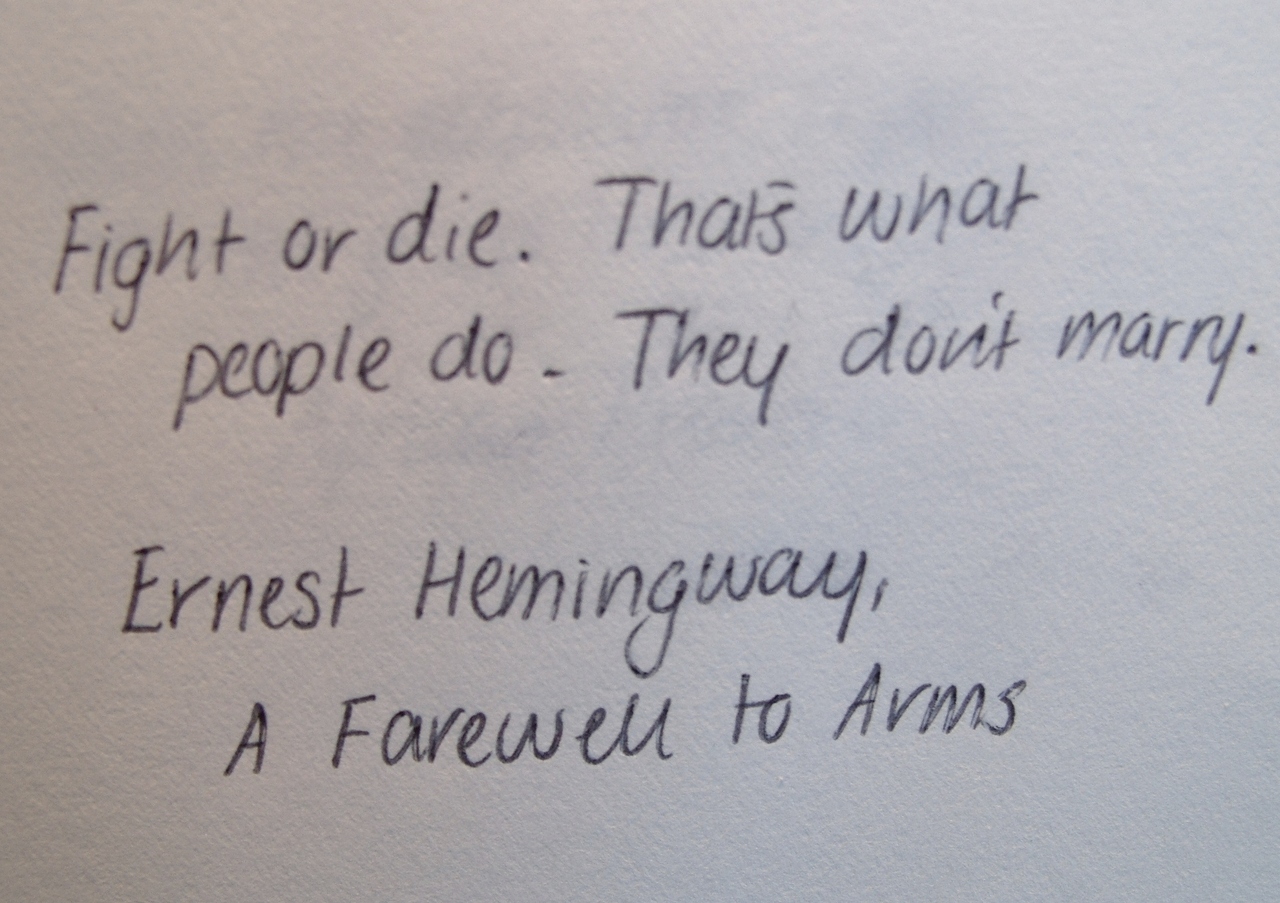 Fight or die. That's what
people do. They don't marry.
Ernest Hemingway,
A Farewell to Arms